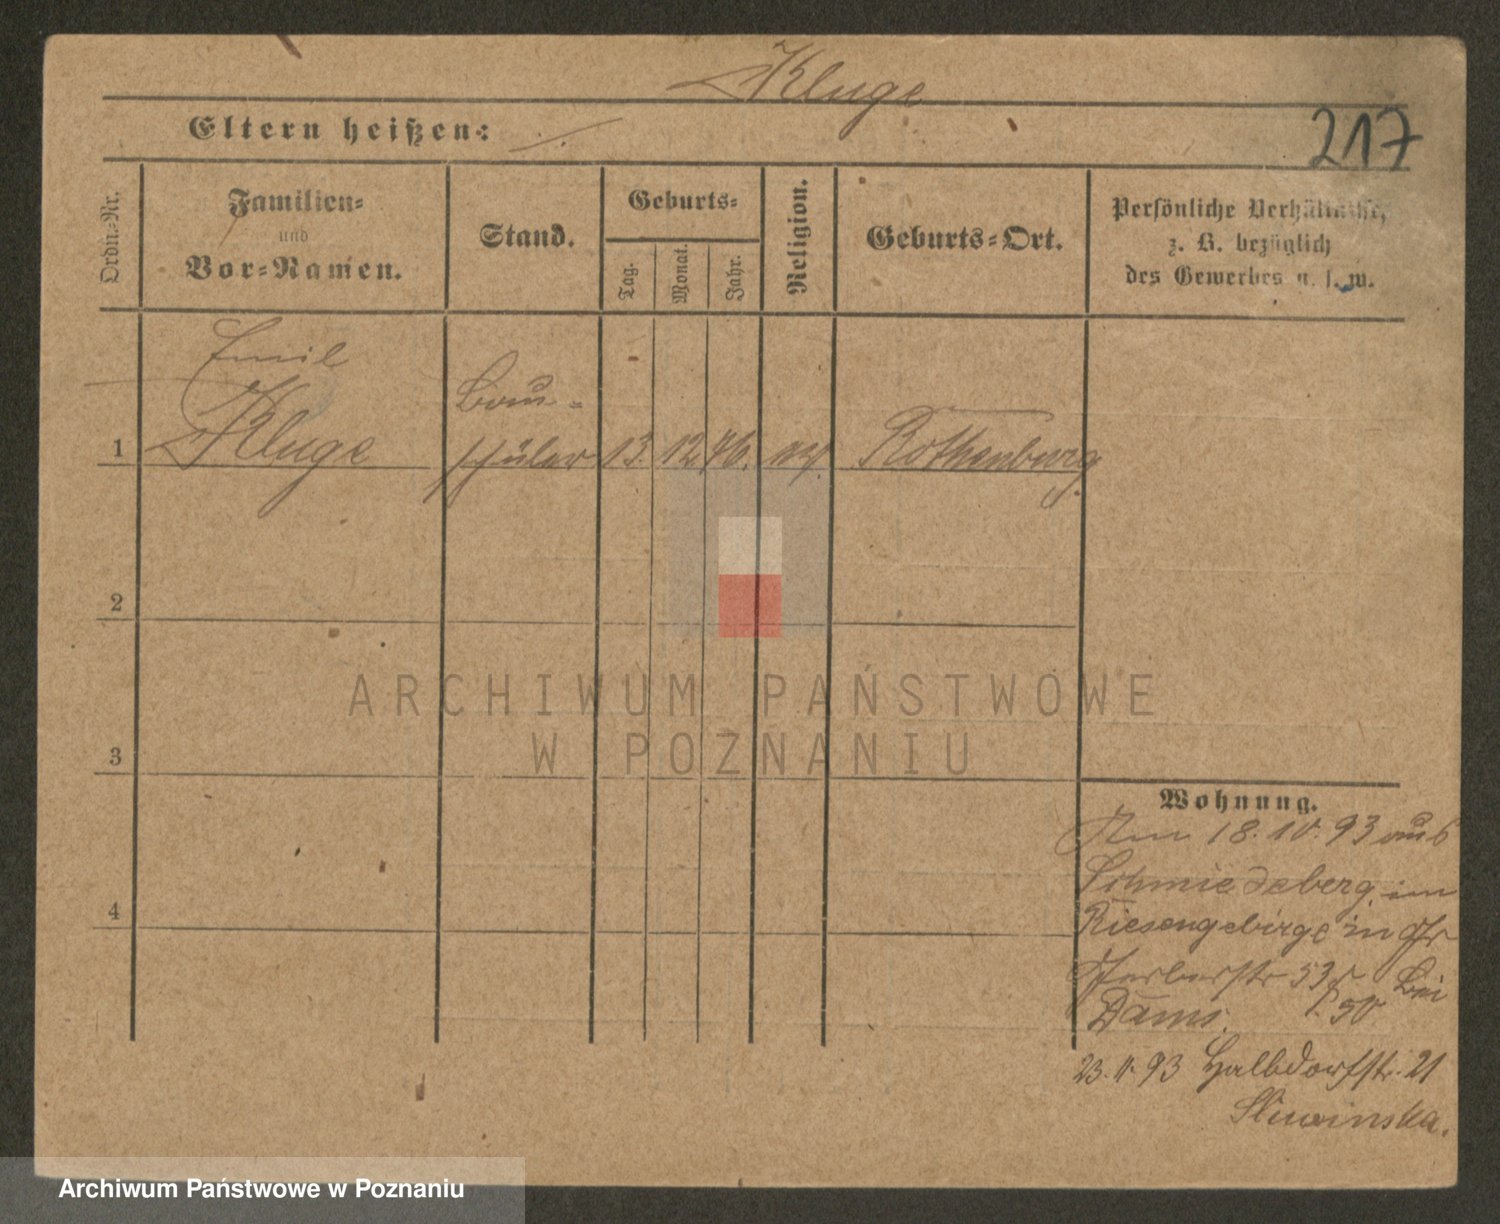 Kluge
Eltern heißen:
217
Ordn.-Nr.
Familien-
und
Vor-Namen.
Stand.
Geburts-
Tag.
Monat.
Jahr.
Religion.
Geburts-Ort.
Persönliche Verhältnisse,
z. B. bezüglich
des Gewerbes u. s. w.
Emil
Kluge
Bau-
schüler
1
13. 12. 76.
Rothenburg
2
3
4
ARCHIWUM PAŃSTWOWE
W POZNANIU
Wohnung.
Am 18. 10. 93 aus
Schmiedeberg im
Riesengebirge in
bei
Dams.
23. 11. 93 Halbdorfstr. 21
Sliwinska.
Archiwum Państwowe w Poznaniu